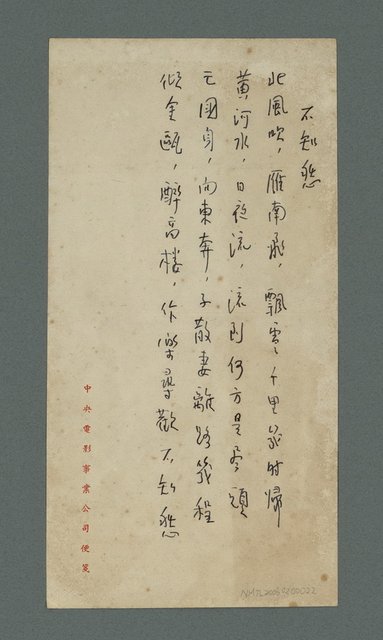 不知愁
北風吹，雁南飛，飄雲千里幾時歸
黃河水，日夜流，流到何方是盡頭
亡國身，向東奔，子散妻離路幾程
傾金甌，醉高樓，作樂尋歡不知愁
中央電影事業公司便箋